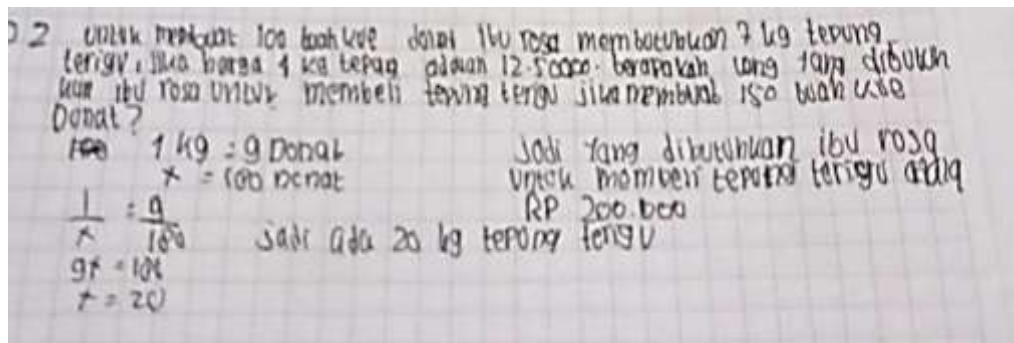 2 untuk membuat 100 buah kue donat Ibu rosa membutuhkan 7 kg tepung
terigu, Jika harga 1 kg tepung adalah 12.50000. berapakah uang yang dibutuh
kan ibu rosa untuk membeli tepung terigu jika membuat 150 buah kue
Donat?
1 kg = 9 Donat
x = 100 Donat
1/x = 9/100
9x = 100
x = 20
Jadi ada 20 kg tepung terigu
Jadi Yang dibutuhkan ibu rosa
untuk membeli tepung terigu adalah
RP 200.000